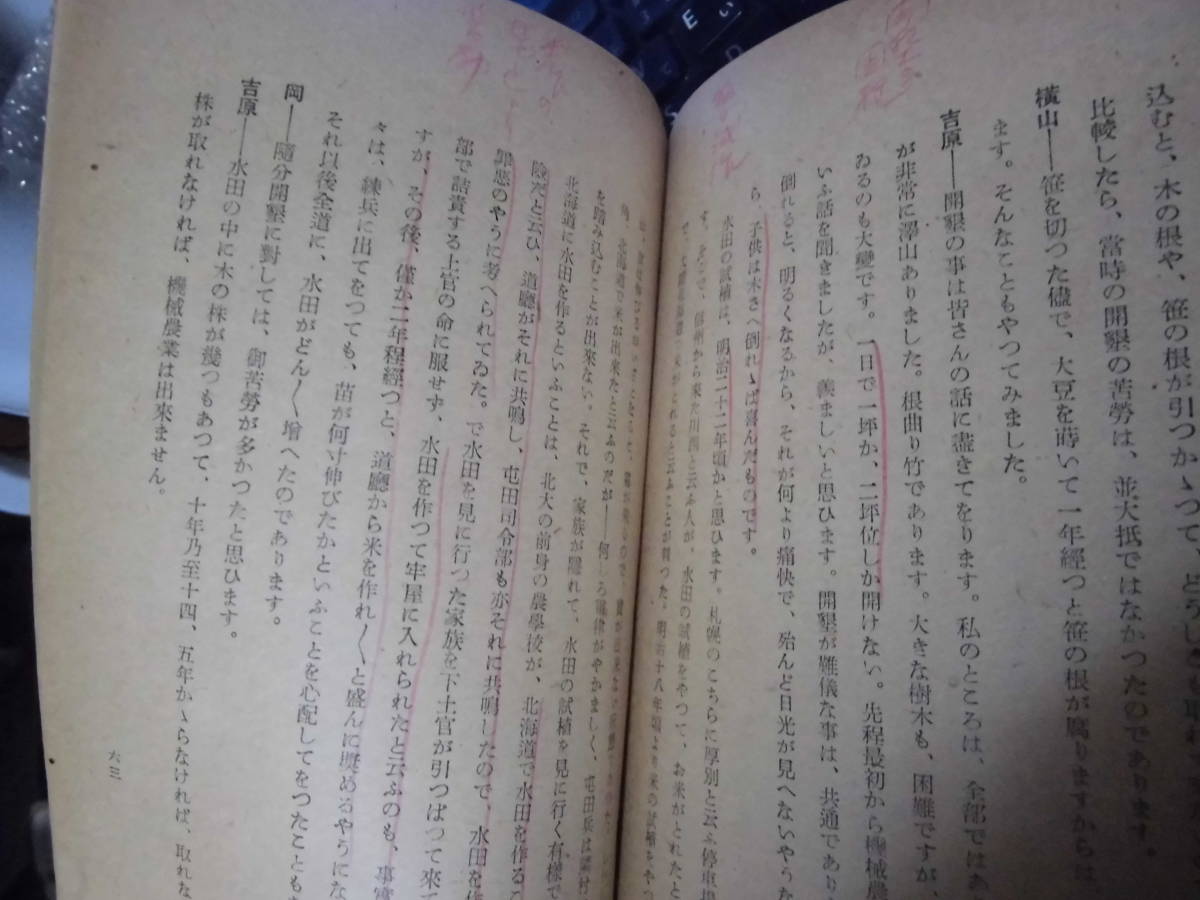 込むと、木の根や、笹の根が引つかゝつて、どうしても取れ
比較したら、當時の開墾の苦勞は、並大抵ではなかつたのであります。
横山――笹を切つた儘で、大豆を蒔いて一年經つと笹の根が腐りますからは、
ます。そんなこともやつてみました。
吉原――開墾の事は皆さんの話に盡きてをります。私のところは、全部ではあ
が非常に澤山ありました。根曲り竹であります。大きな樹木も、困難ですが、
ゐるのも大變です。一日で一坪か、二坪位しか開けない。先程最初から機械農
いふ話を聞きましたが、羨ましいと思ひます。開墾が難儀な事は、共通であり
倒れると、明るくなるから、それが何より痛快で、殆んど日光が見へないやうな
ら、子供は木さへ倒れゝば喜んだものです。
水田の試植は、明治二十二年頃かと思ひます。札幌のこちらに厚別と云ふ停車場
す。そこで、信州から來た川西と云ふ人が、水田の試植をやつて、お米がとれたと
米がとれると云ふことが判つた。明治十八年頃より米の試植をやつ
角 北海道で米が出來たと云ふのだが――何しろ罐律がやかましく、屯田兵は隣村
を踏み込むことが出來ない。それで、家族が隱れて、水田の試植を見に行く有樣で
北海道に水田を作るといふことは、北大の前身の農學校が、北海道で水田を作るこ
險だと云ひ、道廳がそれに共鳴し、屯田司令部も亦それに共鳴したので、水田を
罪惡のやうに考へられてゐた。で水田を見に行つた家族を下士官が引つぱつて來て
部で詰責する上官の命に服せず、水田を作つて牢屋に入れられたと云ふのも、事實
すが、その後、僅か二年程經つと、道廳から米を作れ〳〵と盛んに奬めるやうにな
々は、練兵に出てをつても、苗が何寸伸びたかといふことを心配してをつたことも
それ以後全道に、水田がどん〳〵增へたのであります。
岡――隨分開墾に對しては、御苦勞が多かつたと思ひます。
吉原――水田の中に木の株が幾つもあつて、十年乃至十四、五年かゝらなければ、取れな
株が取れなければ、機械農業は出來ません。
六三